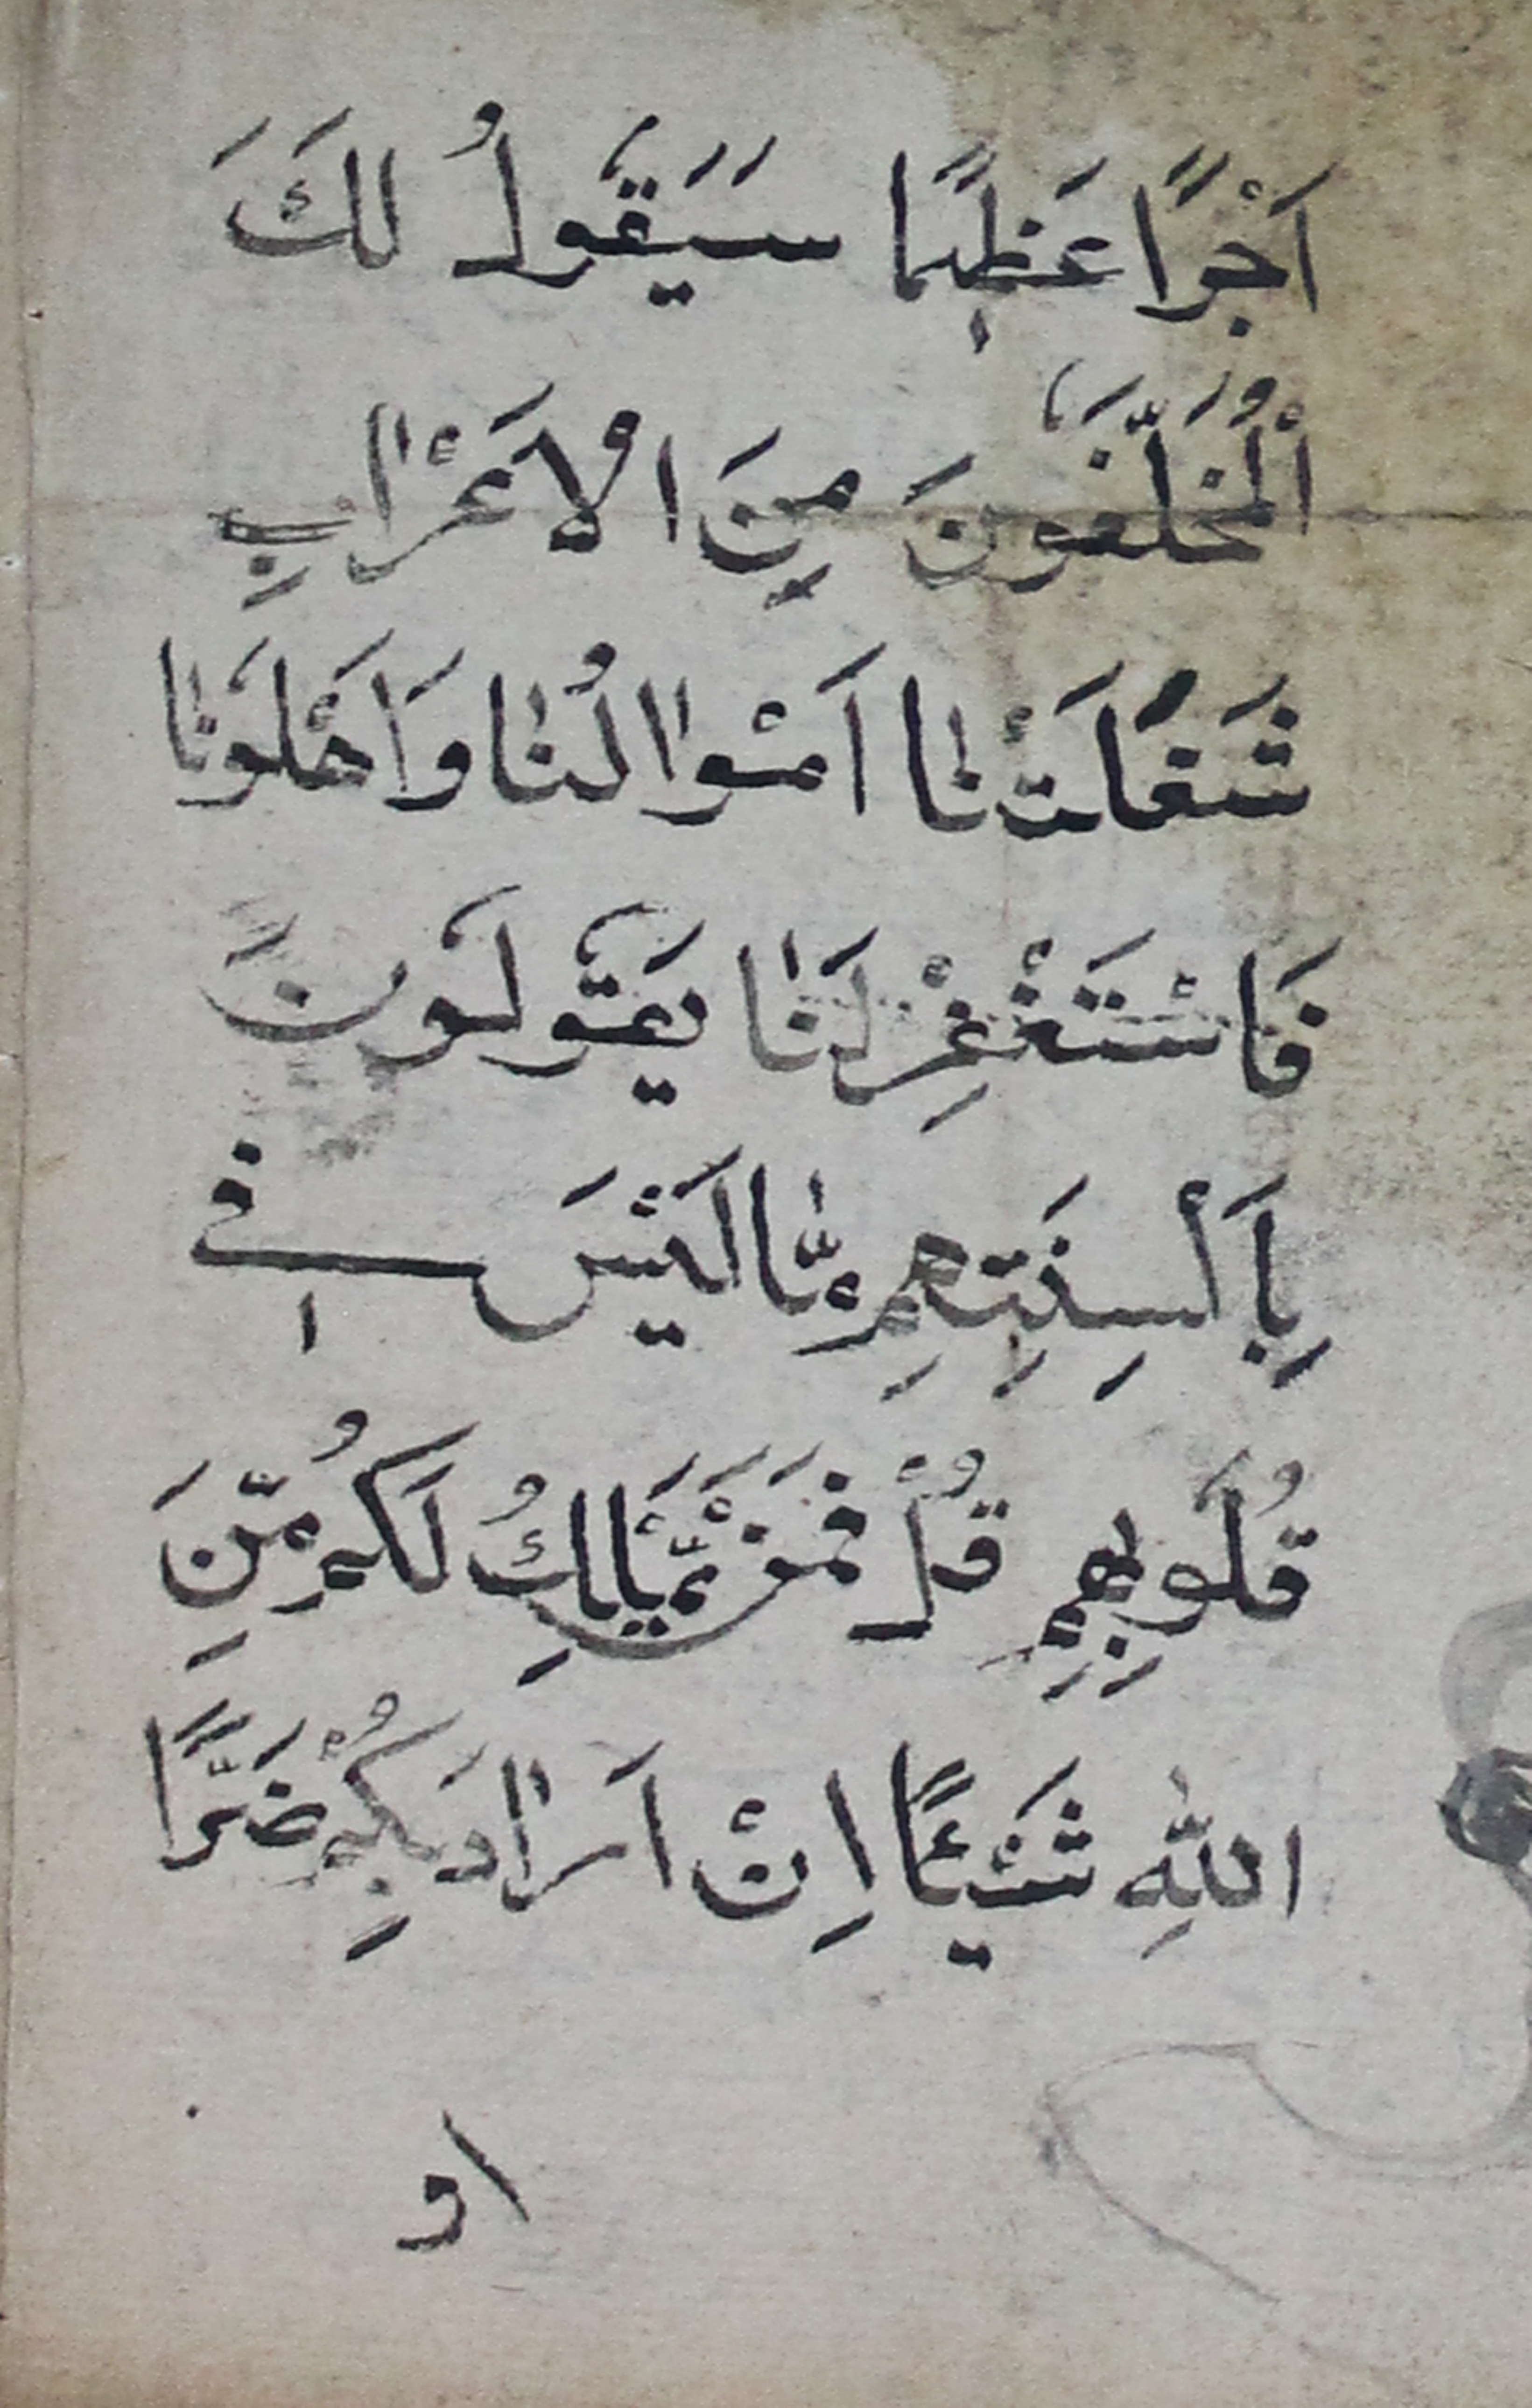 اَجْرًا عَظِيمًا سَيَقُولُ لَكَ
اْلمُخَلَّفُونَ مِنَ الْاَعْرَابِ
شَغَلَتْنَا اَمْوَالُنَا وَاَهْلُونَا
فَاسْتَغْفِرْ لَنَا يَقُولُونَ
بِاَلْسِنَتِهِمْ مَّا لَيْسَ فِي
قُلُوبِهِمْ قُلْ فَمَنْ يَّمْلِكُ لَكُمْ مِّنَ
اللّٰهِ شَيْئًا اِنْ اَرَادَ بِكُمْ ضَرًّا
او